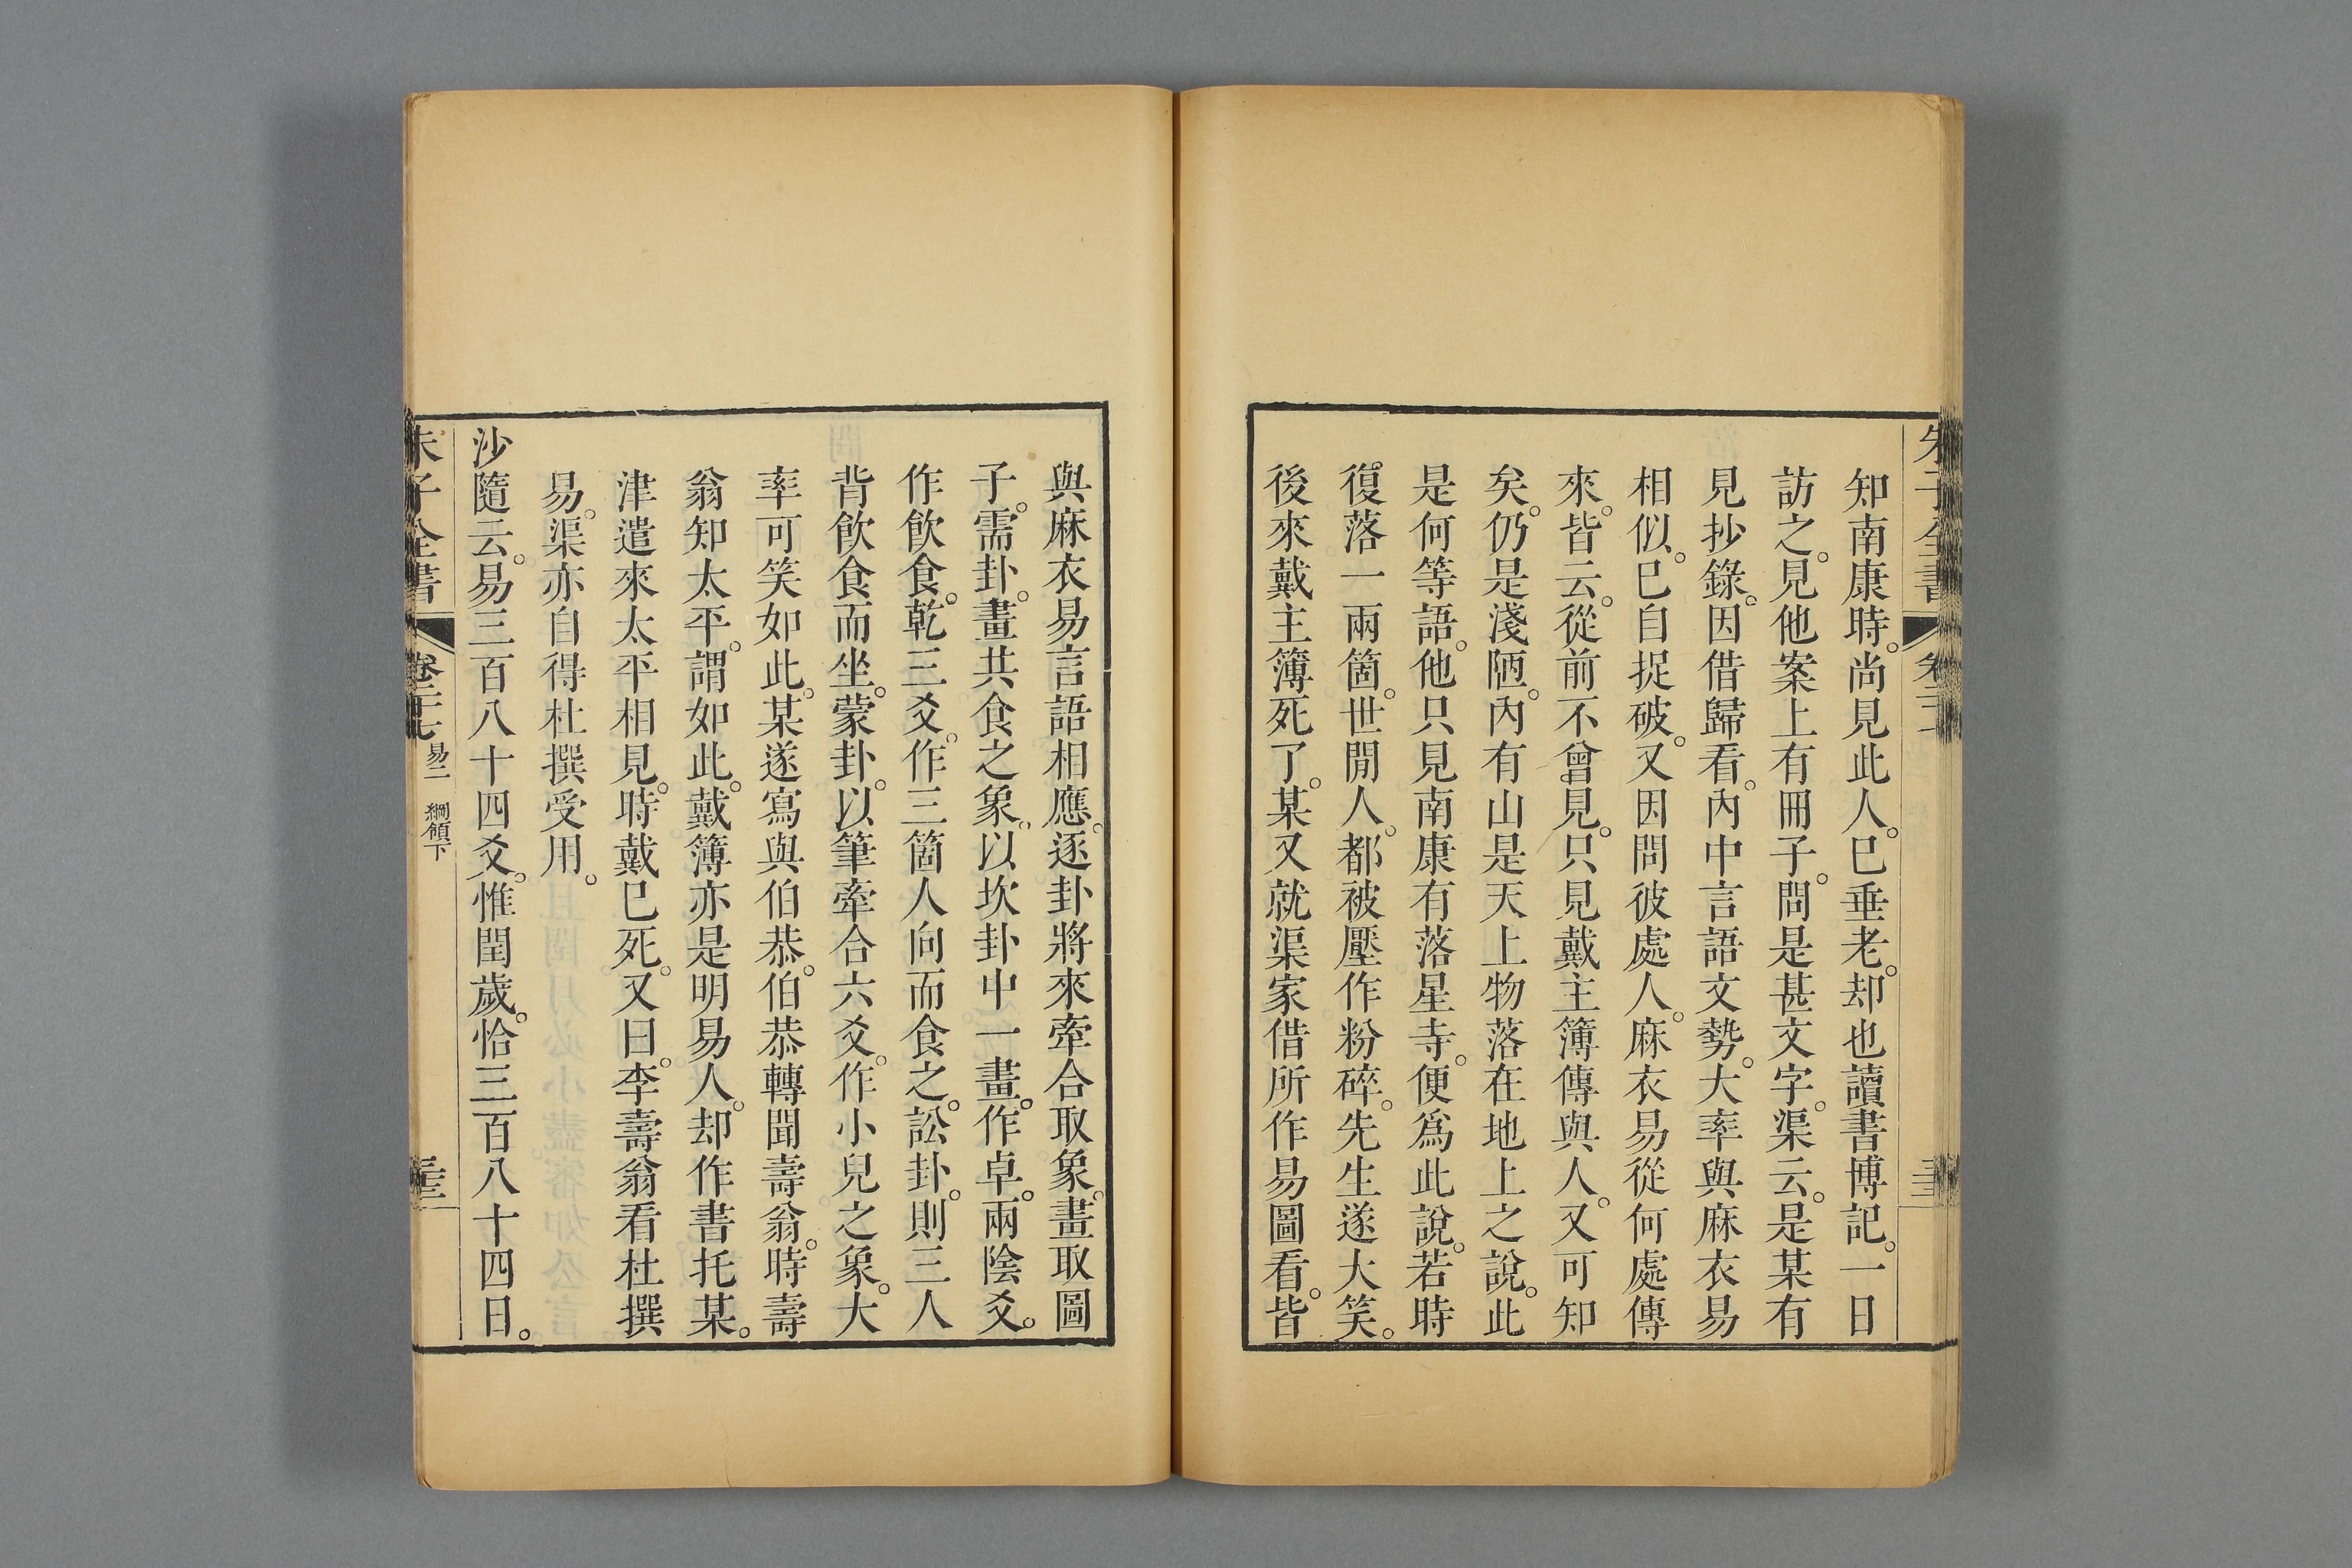 知南康時。尚見此人。已垂老。却也讀書博記。一日
訪之。見他案上有冊子。問是甚文字。渠云。是某有
見抄錄。因借歸看。內中言語文勢。大率與麻衣易
相似。已自捉破。又因問彼處人。麻衣易從何處傳
來。皆云。從前不曾見。只見戴主簿傳與人。又可知
矣。仍是淺陋。內有山是天上物落在地上之說。此
是何等語。他只見南康有落星寺。便為此說。若時
復落一兩箇。世閒人。都被壓作粉碎。先生遂大笑。
後來戴主簿死了。某又就渠家借所作易圖看。皆
與麻衣易言語相應。逐卦將來牽合取象。畫取圖
子。需卦。畫共食之象。以坎卦中一畫。作卓。兩陰爻。
作飲食。乾三爻。作三箇人向而食之。訟卦。則三人
背飲食而坐。蒙卦。以筆牽合六爻。作小兒之象。大
率可笑如此。某遂寫與伯恭。伯恭轉聞壽翁。時壽
翁知太平。謂如此。戴簿亦是明易人。却作書托某。
津遣來太平相見。時戴已死。又曰。李壽翁看杜撰
易。渠亦自得杜撰受用。
沙隨云。易三百八十四爻。惟閏歲。恰三百八十四日。
朱子全書
卷二十七
易二
綱領下